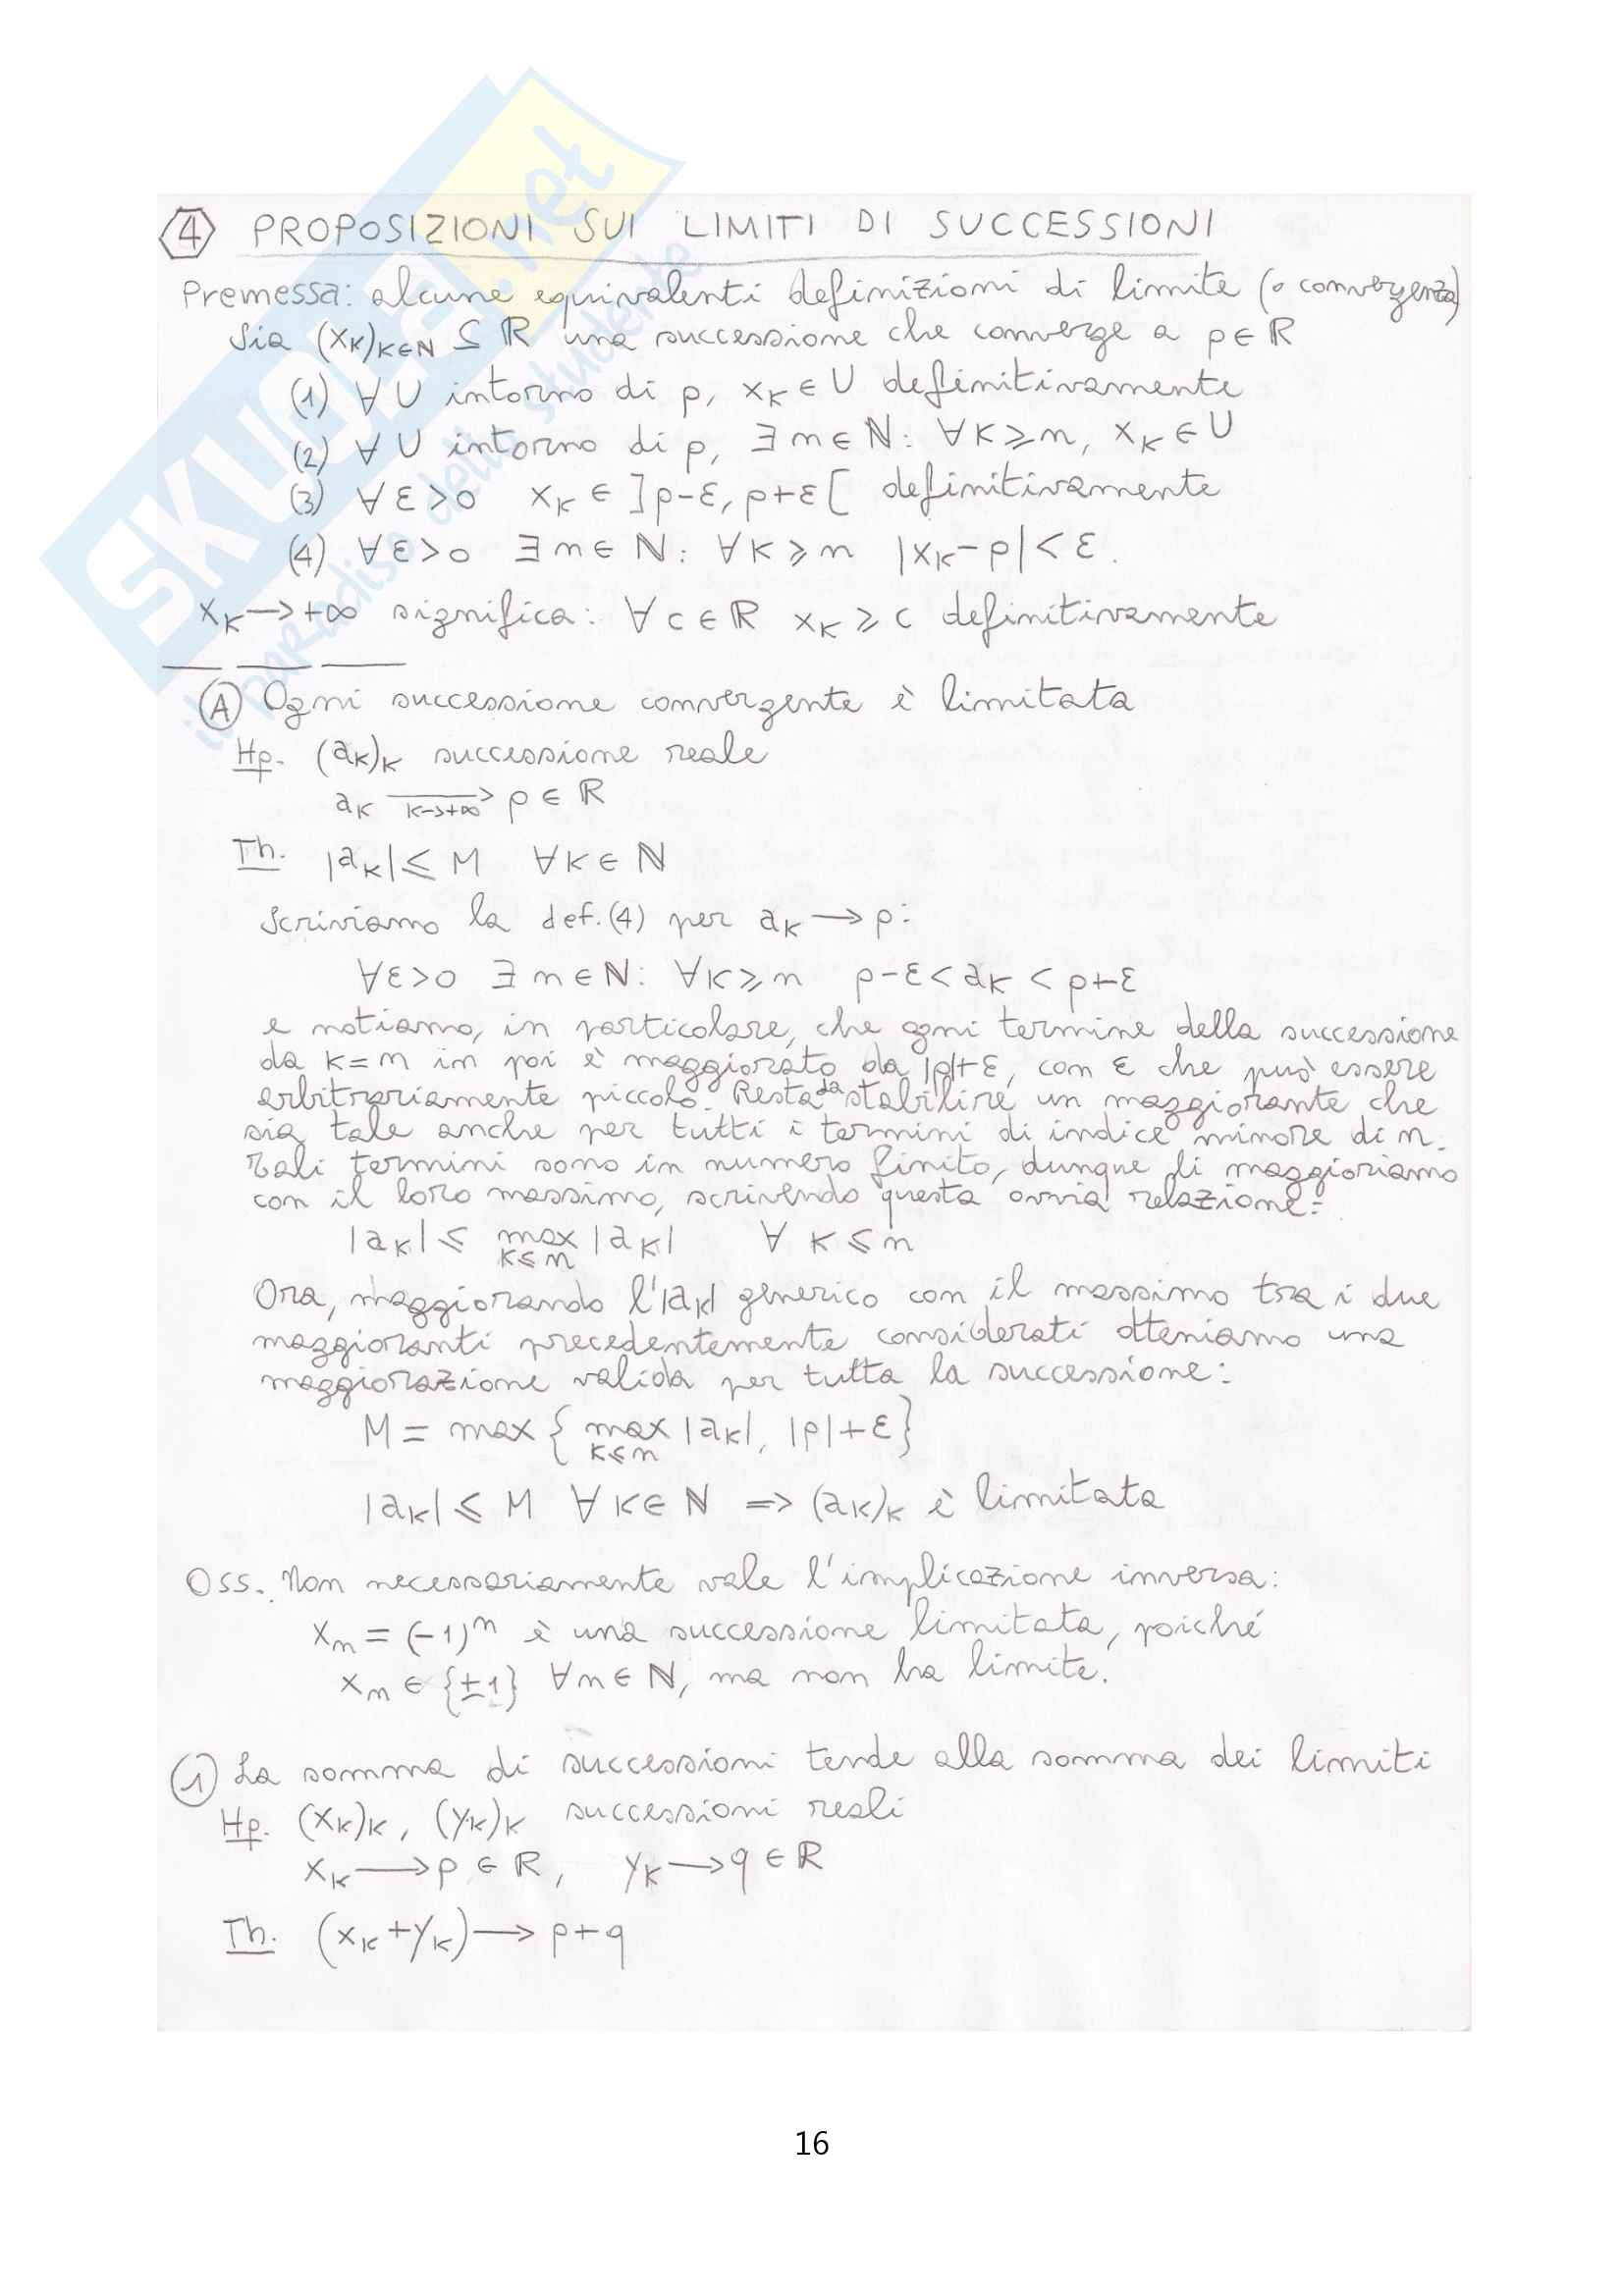 SKUOLA.net
il paradiso dello studente
4 PROPOSIZIONI SUI LIMITI DI SUCCESSIONI
Premessa: alcune equivalenti definizioni di limite (o convergenza)
Sia (xₖ)ₖ∈ℕ ⊆ ℝ una successione che converge a p∈ℝ
(1) ∀U intorno di p, xₖ∈U definitivamente
(2) ∀U intorno di p, ∃n∈ℕ: ∀k⩾n, xₖ∈U
(3) ∀ε>0 xₖ∈]p-ε, p+ε[ definitivamente
(4) ∀ε>0 ∃n∈ℕ: ∀k⩾n |xₖ-p|<ε.
xₖ→+∞ significa: ∀c∈ℝ xₖ⩾c definitivamente
A Ogni successione convergente è limitata
Hp. (aₖ)ₖ successione reale
aₖ ⟶ p∈ℝ
k→+∞
Th. |aₖ|⩽M ∀k∈ℕ
Scriviamo la def.(4) per aₖ→p:
∀ε>0 ∃n∈ℕ: ∀k⩾n p-ε<aₖ<p+ε
e notiamo, in particolare, che ogni termine della successione
da k=n in poi è maggiorato da |p|+ε, con ε che può essere
arbitrariamente piccolo. Resta da stabilire un maggiorante che
sia tale anche per tutti i termini di indice minore di n.
Tali termini sono in numero finito, dunque li maggioriamo
con il loro massimo, scrivendo questa ovvia relazione:
|aₖ|⩽ max |aₖ| ∀k⩽n
k⩽n
Ora, maggiorando l'|aₖ| generico con il massimo tra i due
maggioranti precedentemente considerati otteniamo una
maggiorazione valida per tutta la successione:
M = max { max |aₖ|, |p|+ε}
k⩽n
|aₖ|⩽M ∀k∈ℕ => (aₖ)ₖ è limitata
Oss. Non necessariamente vale l'implicazione inversa:
xₙ = (-1)ⁿ è una successione limitata, poiché
xₙ∈{±1} ∀n∈ℕ, ma non ha limite.
1 La somma di successioni tende alla somma dei limiti
Hp. (xₖ)ₖ, (yₖ)ₖ successioni reali
xₖ→p∈ℝ, yₖ→q∈ℝ
Th. (xₖ+yₖ)→p+q
16